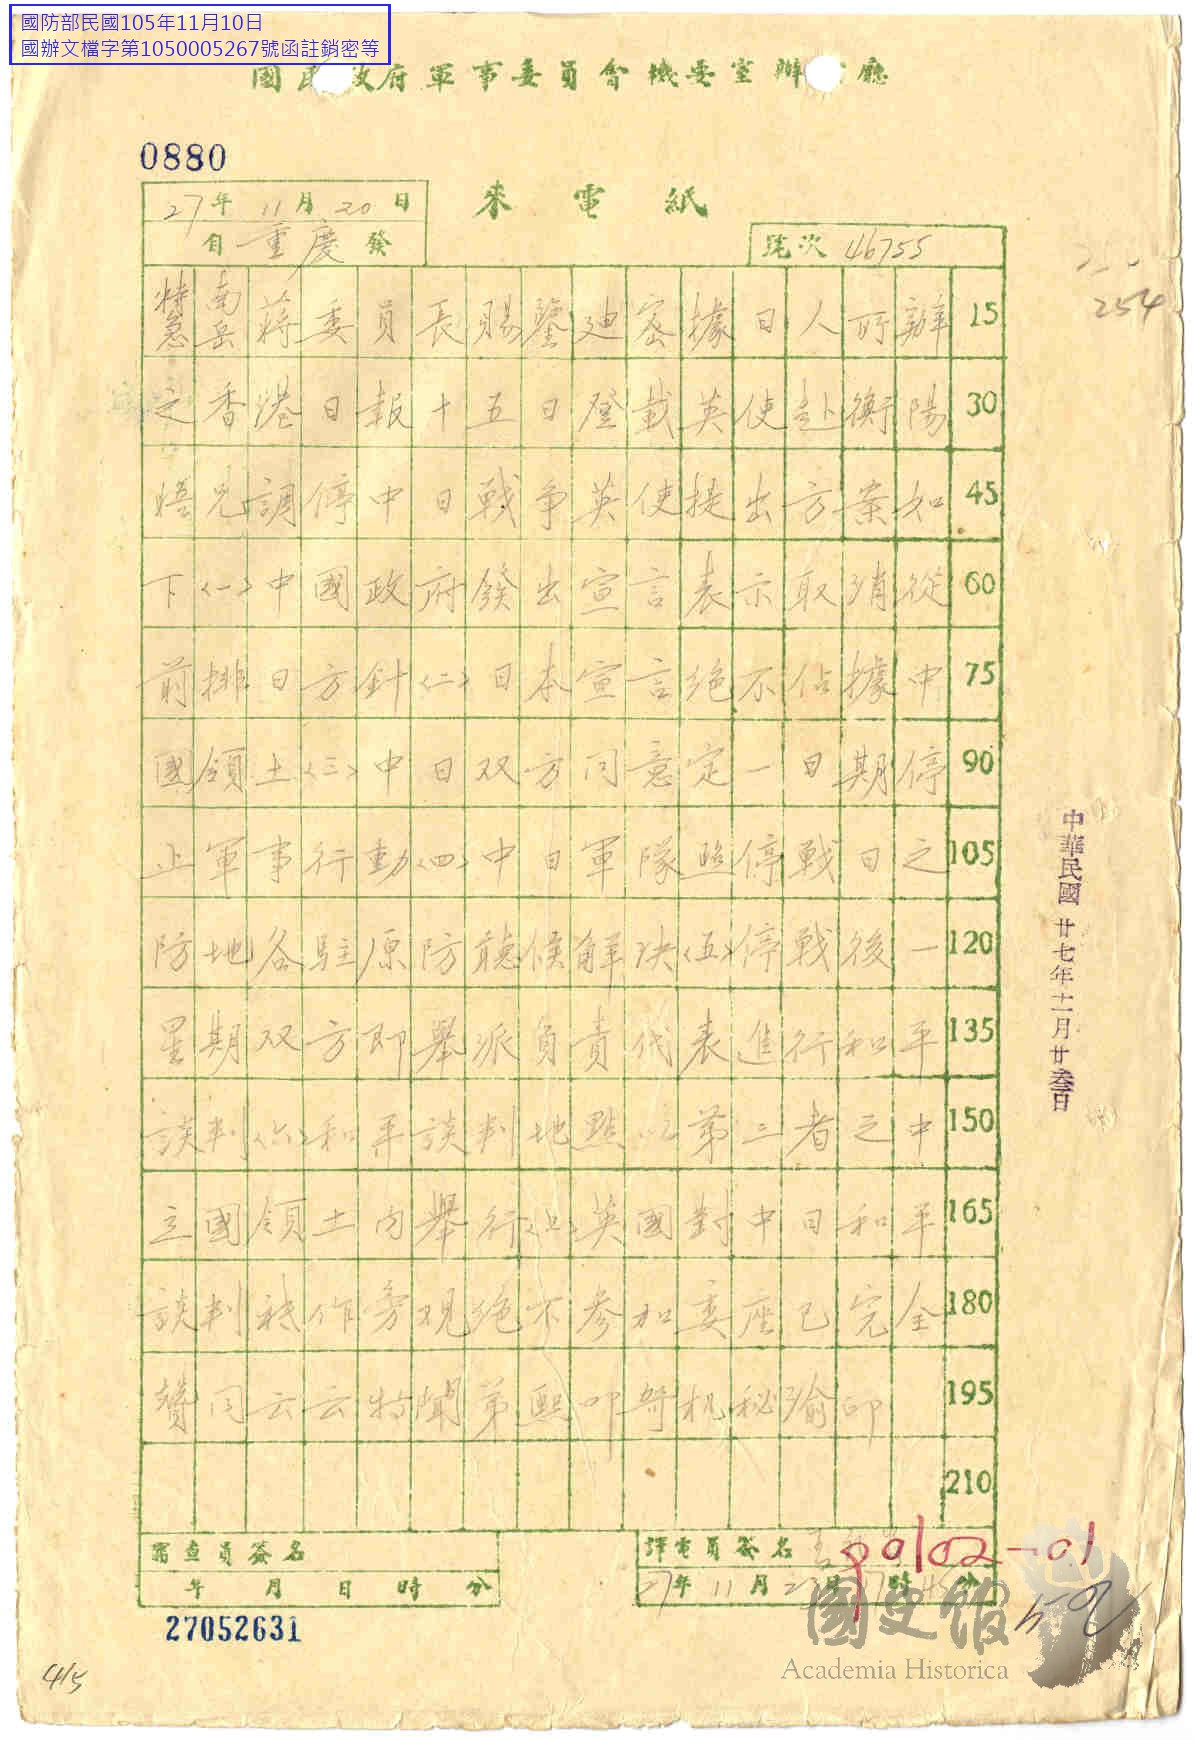 國防部民國105年11月10日
國辦文檔字第1050005267號函註銷密等
國民政府軍事委員會機要室辦廳
0880
來電紙
27年11月20日
自重慶發
號次 46755
254
特急南岳蔣委員長賜鑒廸密據日人所辦 15
之香港日報十五日登載英使赴衡陽 30
晤兄調停中日戰爭英使提出方案如 45
下〈一〉中國政府發出宣言表示取消從 60
前排日方針〈二〉日本宣言絕不佔據中 75
國領土〈三〉中日双方同意定一日期停 90
止軍事行動〈四〉中日軍隊照停戰日之 105
防地各駐原防聽候解決〈五〉停戰後一 120
星期双方即舉派負責代表進行和平 135
談判〈六〉和平談判地點以第三者之中 150
立國領土內舉行〈七〉英國對中日和平 165
談判祇作旁观絕不參加委座已完全 180
贊同云云特聞弟熙叩哿机秘渝印 195
210
中華民國廿七年十一月廿叁日
審查員簽名
年月日時分
譯電員簽名
27年11月2日17時45分
90102-01
27052631
415
國史館
Academia Historica